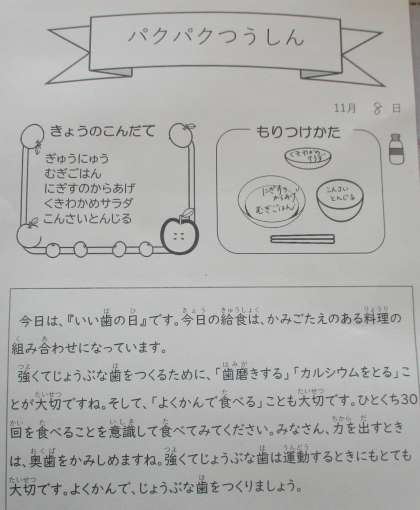 パクパクつうしん
11月 8 日
きょうのこんだて
ぎゅうにゅう
むぎごはん
にぎすのからあげ
くきわかめサラダ
こんさいとんじる
もりつけかた
くきわかめ
サラダ
にぎすの
からあげ
むぎごはん
こんさい
とんじる
今日は、『いい歯の日』です。今日の給食は、かみごたえのある料理の
組み合わせになっています。
強くてじょうぶな歯をつくるために、「歯磨きする」「カルシウムをとる」こ
とが大切ですね。そして、「よくかんで食べる」ことも大切です。ひとくち30
回を食べることを意識して食べてみてください。みなさん、力を出すとき
は、奥歯をかみしめますね。強くてじょうぶな歯は運動するときにもとても
大切です。よくかんで、じょうぶな歯をつくりましょう。